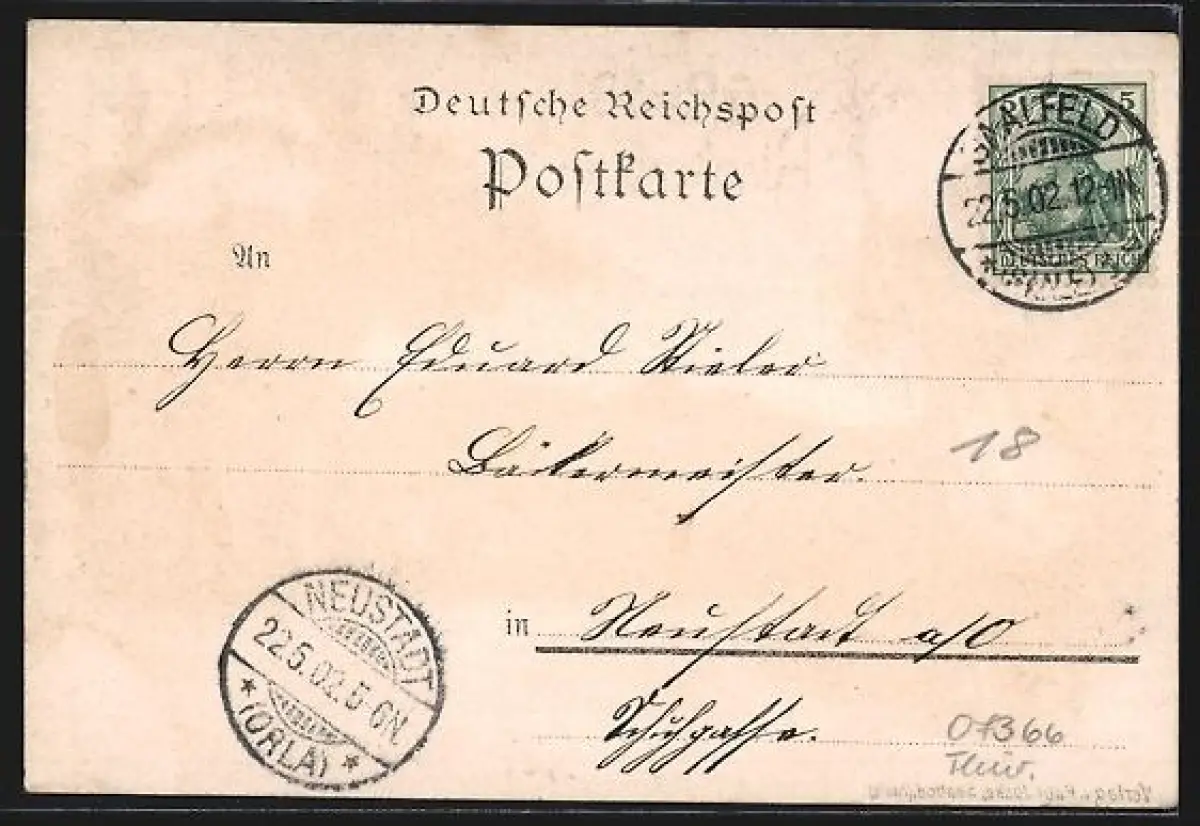 Deutsche Reichspost
Postkarte
5
SAALFELD
22.5.02.12-1N
*(SAALE)*
DEUTSCHES REICH
An
Herrn Eduard
Bäckermeister.
18
NEUSTADT
22.5.02.5-6N.
*(ORLA)*
in Neustadt a/O
Schuhgasse.
07366
Thür.